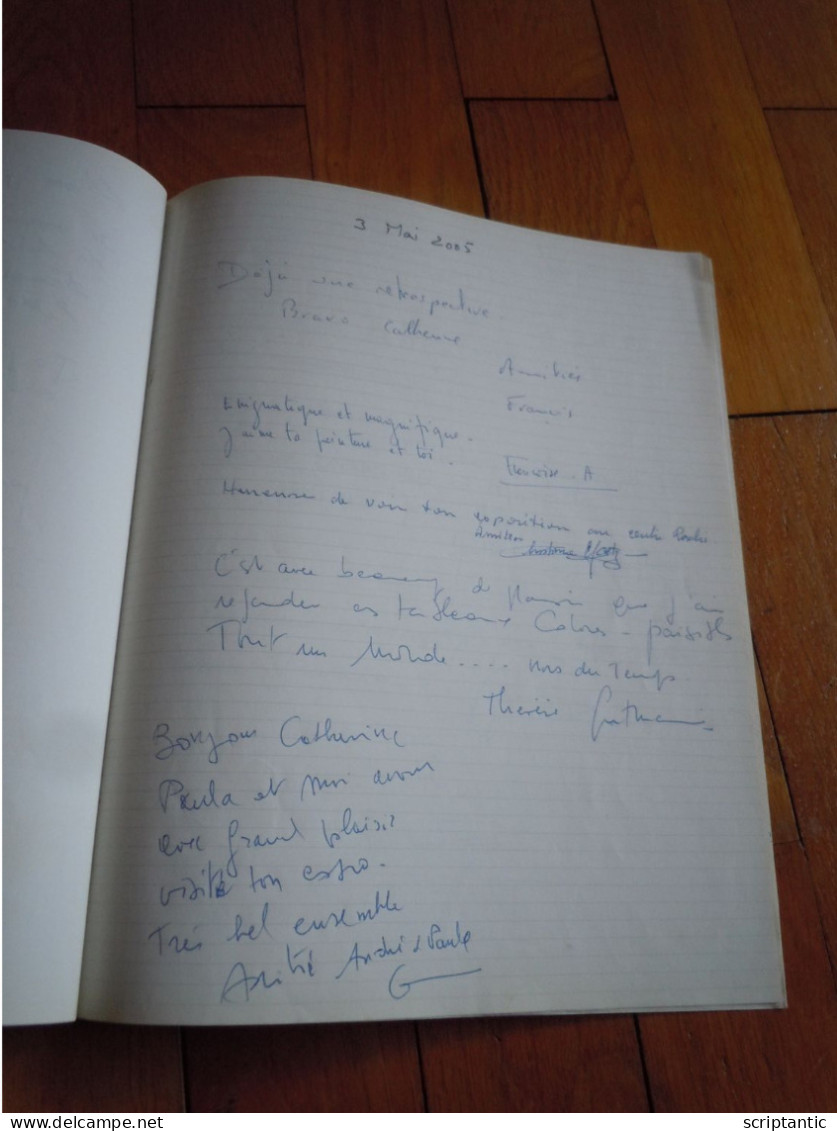 3 Mai 2005
Déjà une retrospective.
Bravo Catherine
Amitiés
Francis
Enigmatique et magnifique.
J'aime ta peinture et toi.
Françoise. A
Heureuse de voir ton exposition au centre
Amitiés
C'est avec beaucoup de plaisir que j'ai
regarder ces tableaux Calmes - paisibles
Tout un Monde.... hors du Temps
Thérèse
Bonjour Catherine
Paula et moi avons
avec grand plaisir
visité ton expo.
Très bel ensemble
Amitié André & Paula
scriptantic